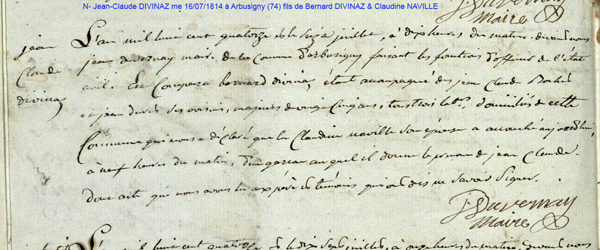 N- Jean-Claude DIVINAZ me 16/07/1814 à Arbusigny (74) fils de Bernard DIVINAZ & Claudine NAVILLE
J. Duvernay
Maire
jean
Claude
divinaz
L'an mil huit cent quatorze le seize juillet, à dix heures du matin, devant nous
jean duvernay maire de la Commune d'arbusigny faisant les fonctions d'officier de l'état
civil. Est Comparu bernard divinaz, étant accompagné des jean Claude
et jean ses voisins, majeurs de vingt cinq ans, tous trois domiciliés de cette
Commune qui nous a déclaré que la Claudine naville son épouse a accouché aujourd'hui
à neuf heures du matin, d'un garçon auquel il donne le prenom de jean Claude.
dont acte que nous avons lu aux père et témoins qui ont dit ne savoir signer.
J. Duvernay
Maire
L'an mil huit cent quatorze le dix sept juillet, à heures du matin, devant nous